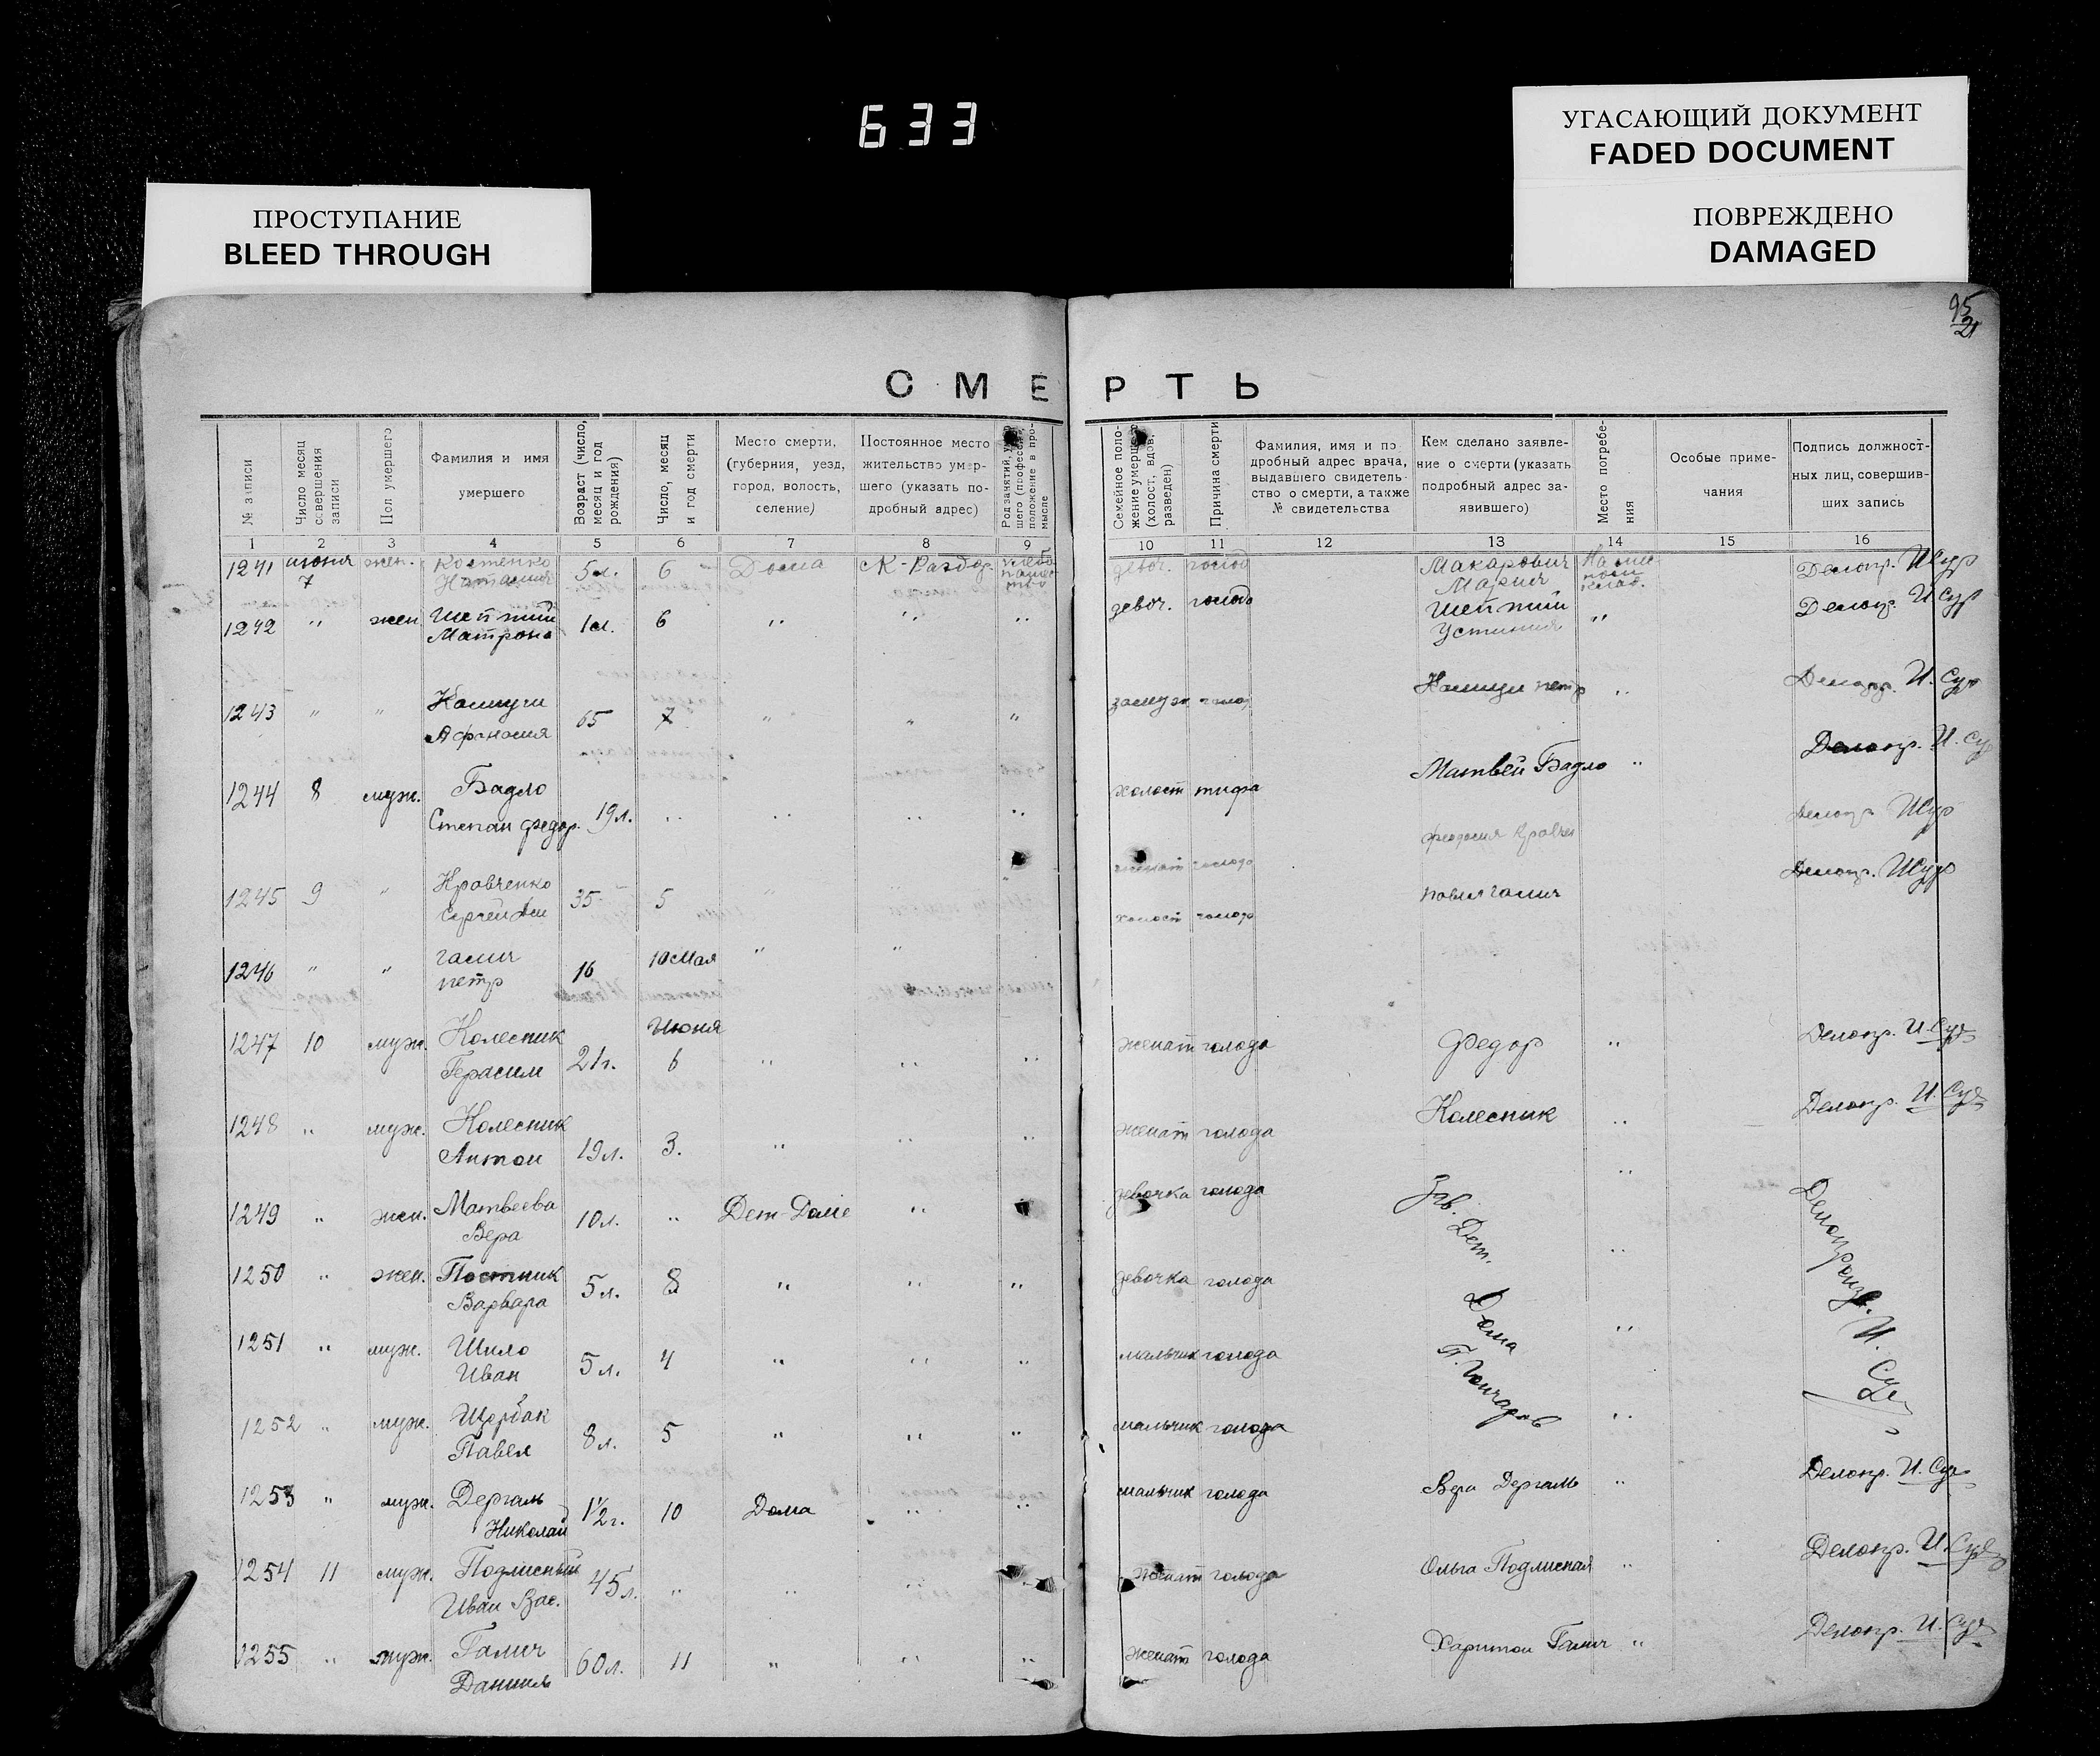 633
УГАСАЮЩИЙ ДОКУМЕНТ
FADED DOCUMENT
ПРОСТУПАНИЕ
BLEED THROUGH
ПОВРЕЖДЕНО
DAMAGED
95
21
СМЕРТЬ
№ записи
Число месяц совершения записи
Пол умершего
Фамилия и имя умершего
Возраст (число, месяц и год рождения)
Число, месяц и год смерти
Место смерти, (губерния, уезд, город, волость, селение)
Постоянное место жительство умершего (указать подробный адрес)
Род занятий, умершего (профессия, положение в промысле
Семейное положение умершего (холост, вдов, разведен)
Причина смерти
Фамилия, имя и подробный адрес врача, выдавшего свидетельство о смерти, а также № свидетельства
Кем сделано заявление о смерти (указать подробный адрес заявившего)
Место погребения
Особые примечания
Подпись должностных лиц, совершивших запись
1 2 3 4 5 6 7 8 9 10 11 12 13 14 15 16
1241 июня 7 жен. Костенко 5л. 6 Дома К-Раздор. девоч. голод Макарович Мария Делопр.
1242 " жен Матрона 1л. 6 " " " девоч. голода Устиния " Делопр.
1243 " " Афанасия 65 7 " " " замуж голод петр " Делопр.
1244 8 муж. Бадло Степан Федор. 19л. " " " " холост тифа Матвей Бадло " Делопр.
1245 9 " Кравченко Сергей 35 5 " " женат голода Феодосия Делопр.
1246 " " галич петр 16 10 Мая " " холост голода павел галич Делопр.
1247 10 муж. Колесник Герасим 21г. Июня 6 " " " женат голода Федор " Делопр.
1248 " муж. Колесник Антон 19л. 3. " " " женат голода Колесник " Делопр.
1249 " жен. Матвеева Вера 10л. " Дет-Доме " девочка голода Зав. Дет. "
1250 " жен. Постник Варвара 5л. 8 " " " девочка голода Дома " Делопроизв.
1251 " муж. Шило Иван 5л. 4 " " " мальчик голода Гончаров "
1252 " муж. Щербак Павел 8л. 5 " " " мальчик голода "
1253 " муж. Дергаль Николай 1½г. 10 Дома " " мальчик голода Вера Дергаль " Делопр.
1254 11 муж. Подлисный Иван Вас. 45л. " " " женат голода Ольга Подлисная " Делопр.
1255 " муж. Галич Даниил 60л. 11 " " " женат голода Харитон Галич " Делопр.